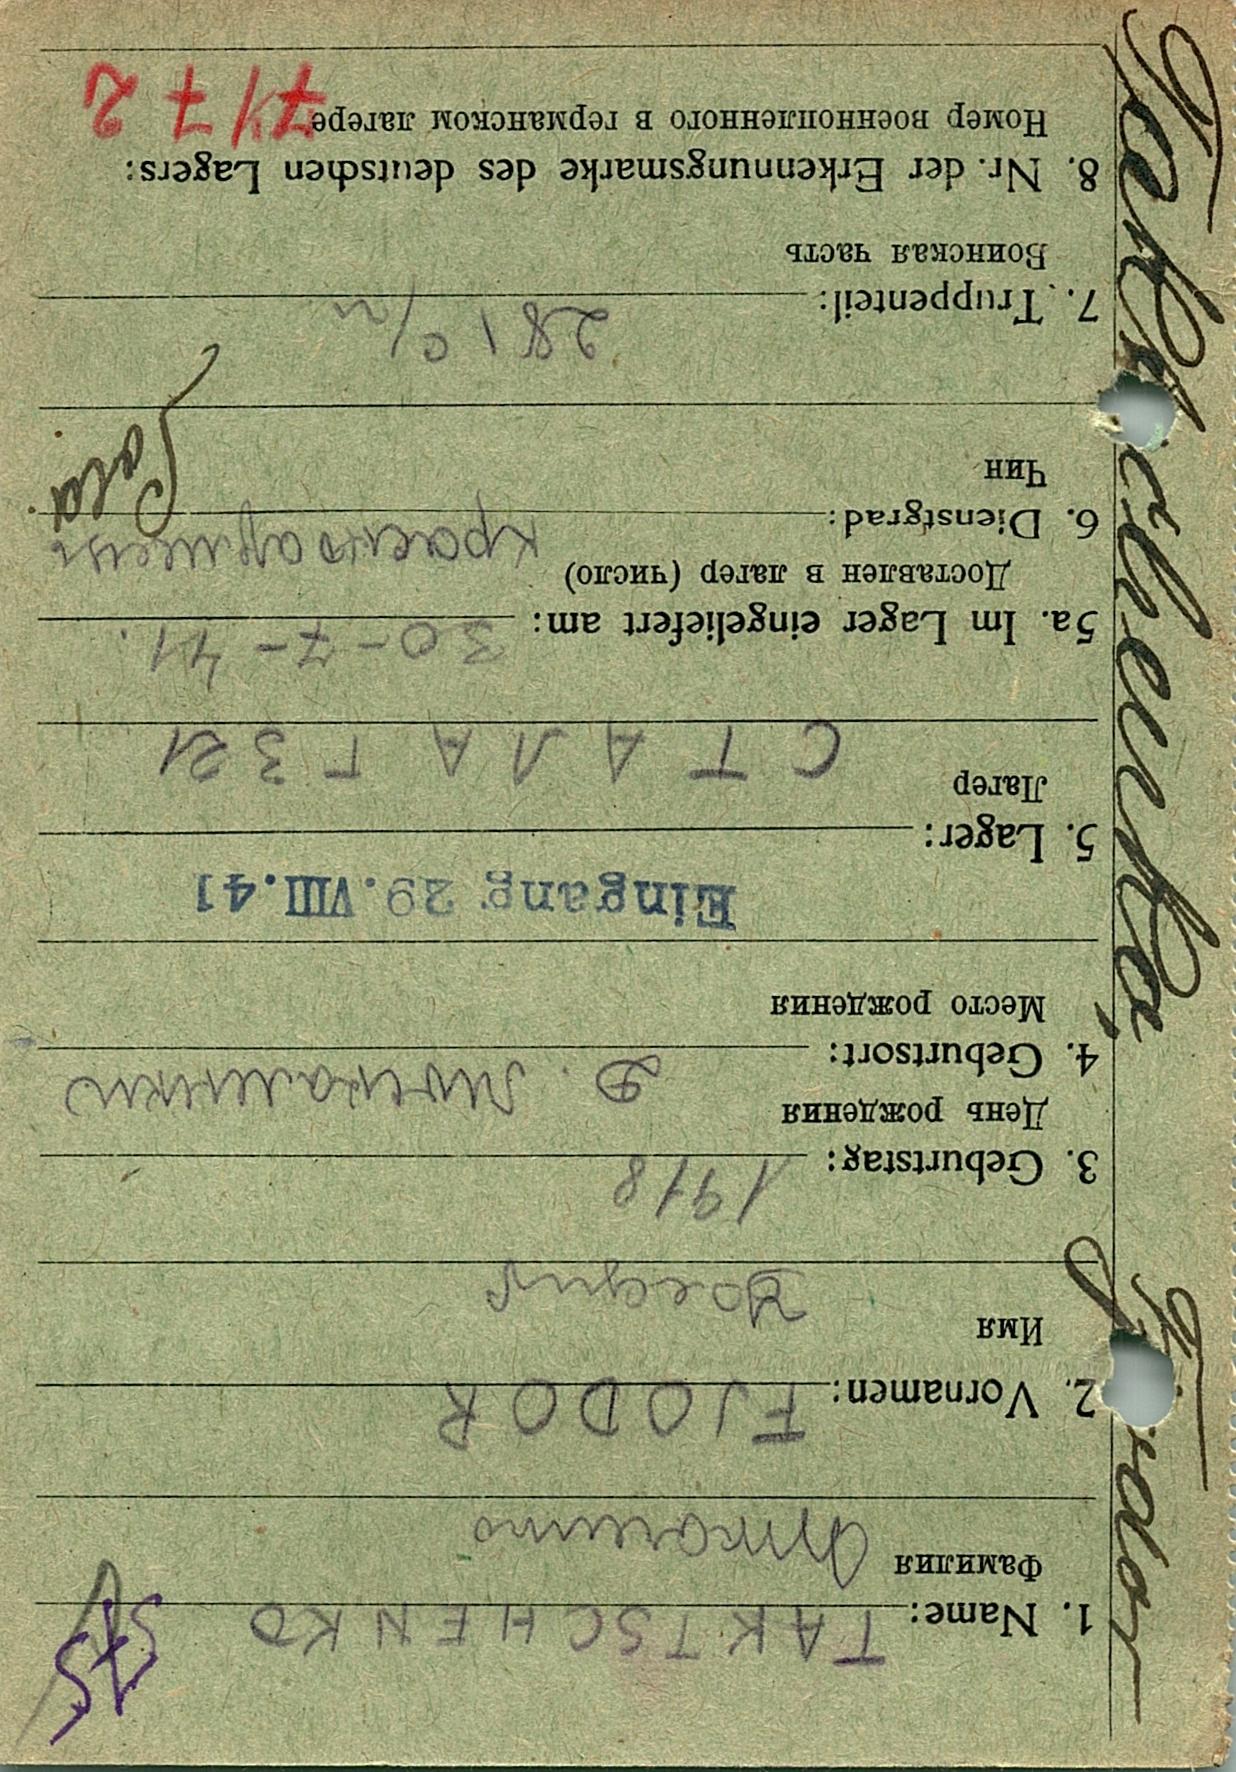 575
1. Name: TAKTSCHENKO
Фамилия
2. Vornamen: FJODOR
Имя
3. Geburtstag: 1918
День рождения
4. Geburtsort: Д.
Место рождения
Eingang 29. VIII. 41
5. Lager:
Лагер СТАЛАГ 321
5a. Im Lager eingeliefert am: 30-7-41.
Доставлен в лагер (число)
6. Dienstgrad: красноармеец
Чин
7. Truppenteil: 281 с/п
Воинская часть
8. Nr. der Erkennungsmarke des deutschen Lagers:
Номер военнопленного в германском лагере
Taktschenko, Fjodor